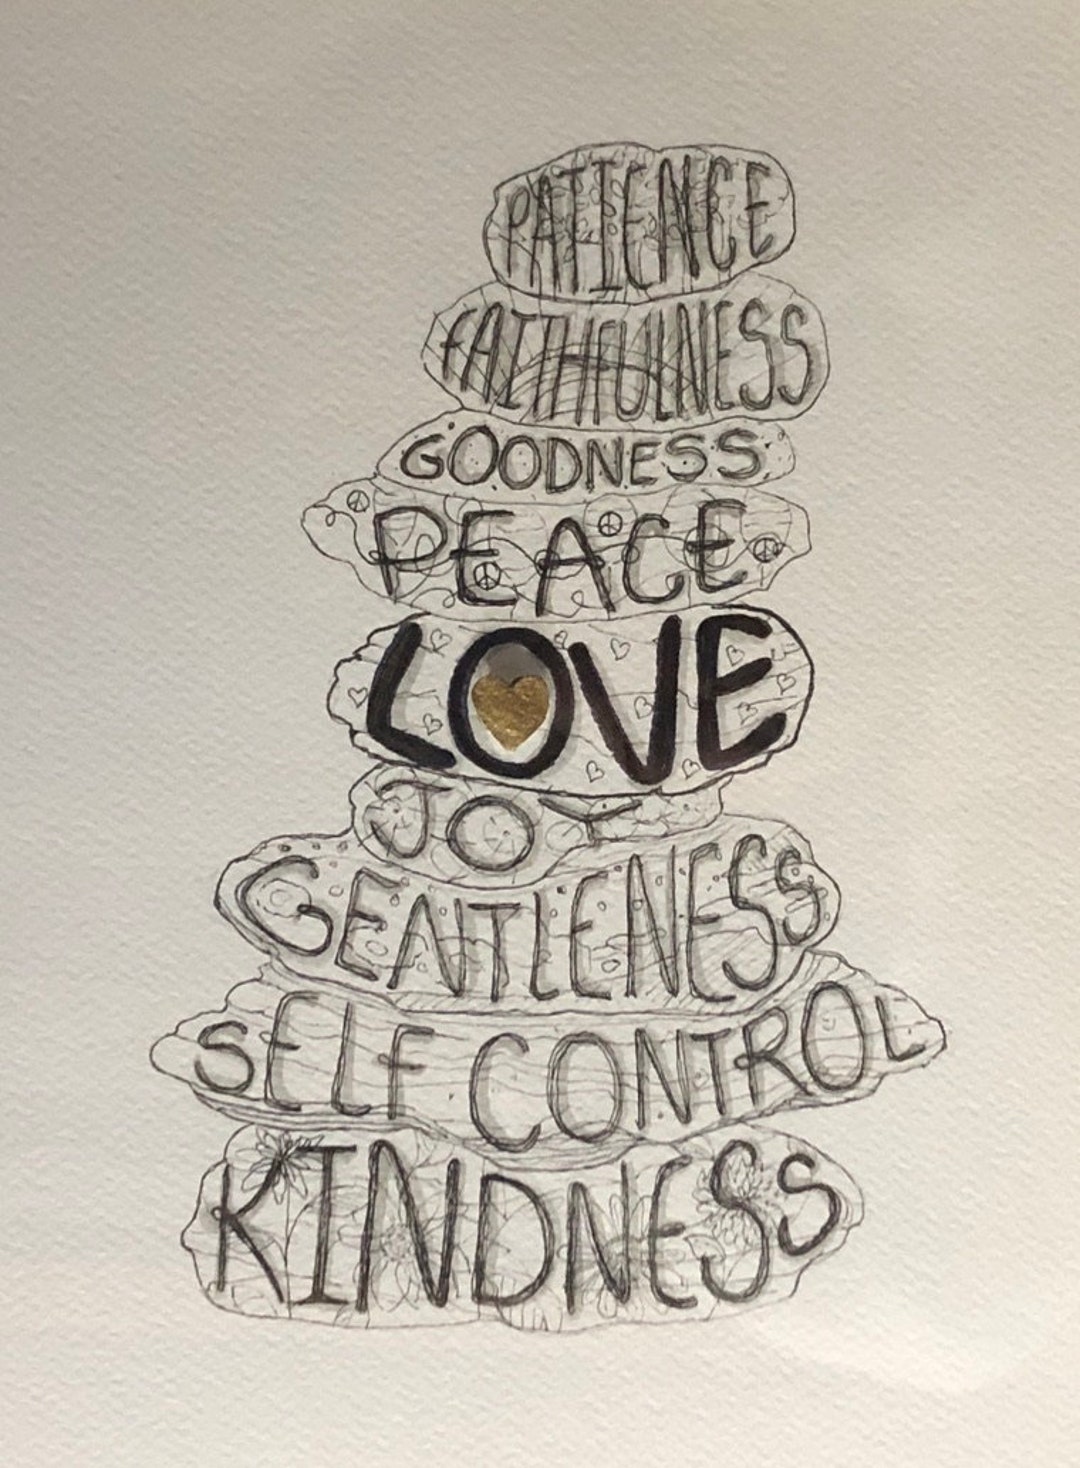 PATIENCE
FAITHFULNESS
GOODNESS
PEACE
LOVE
JOY
GENTLENESS
SELF CONTROL
KINDNESS